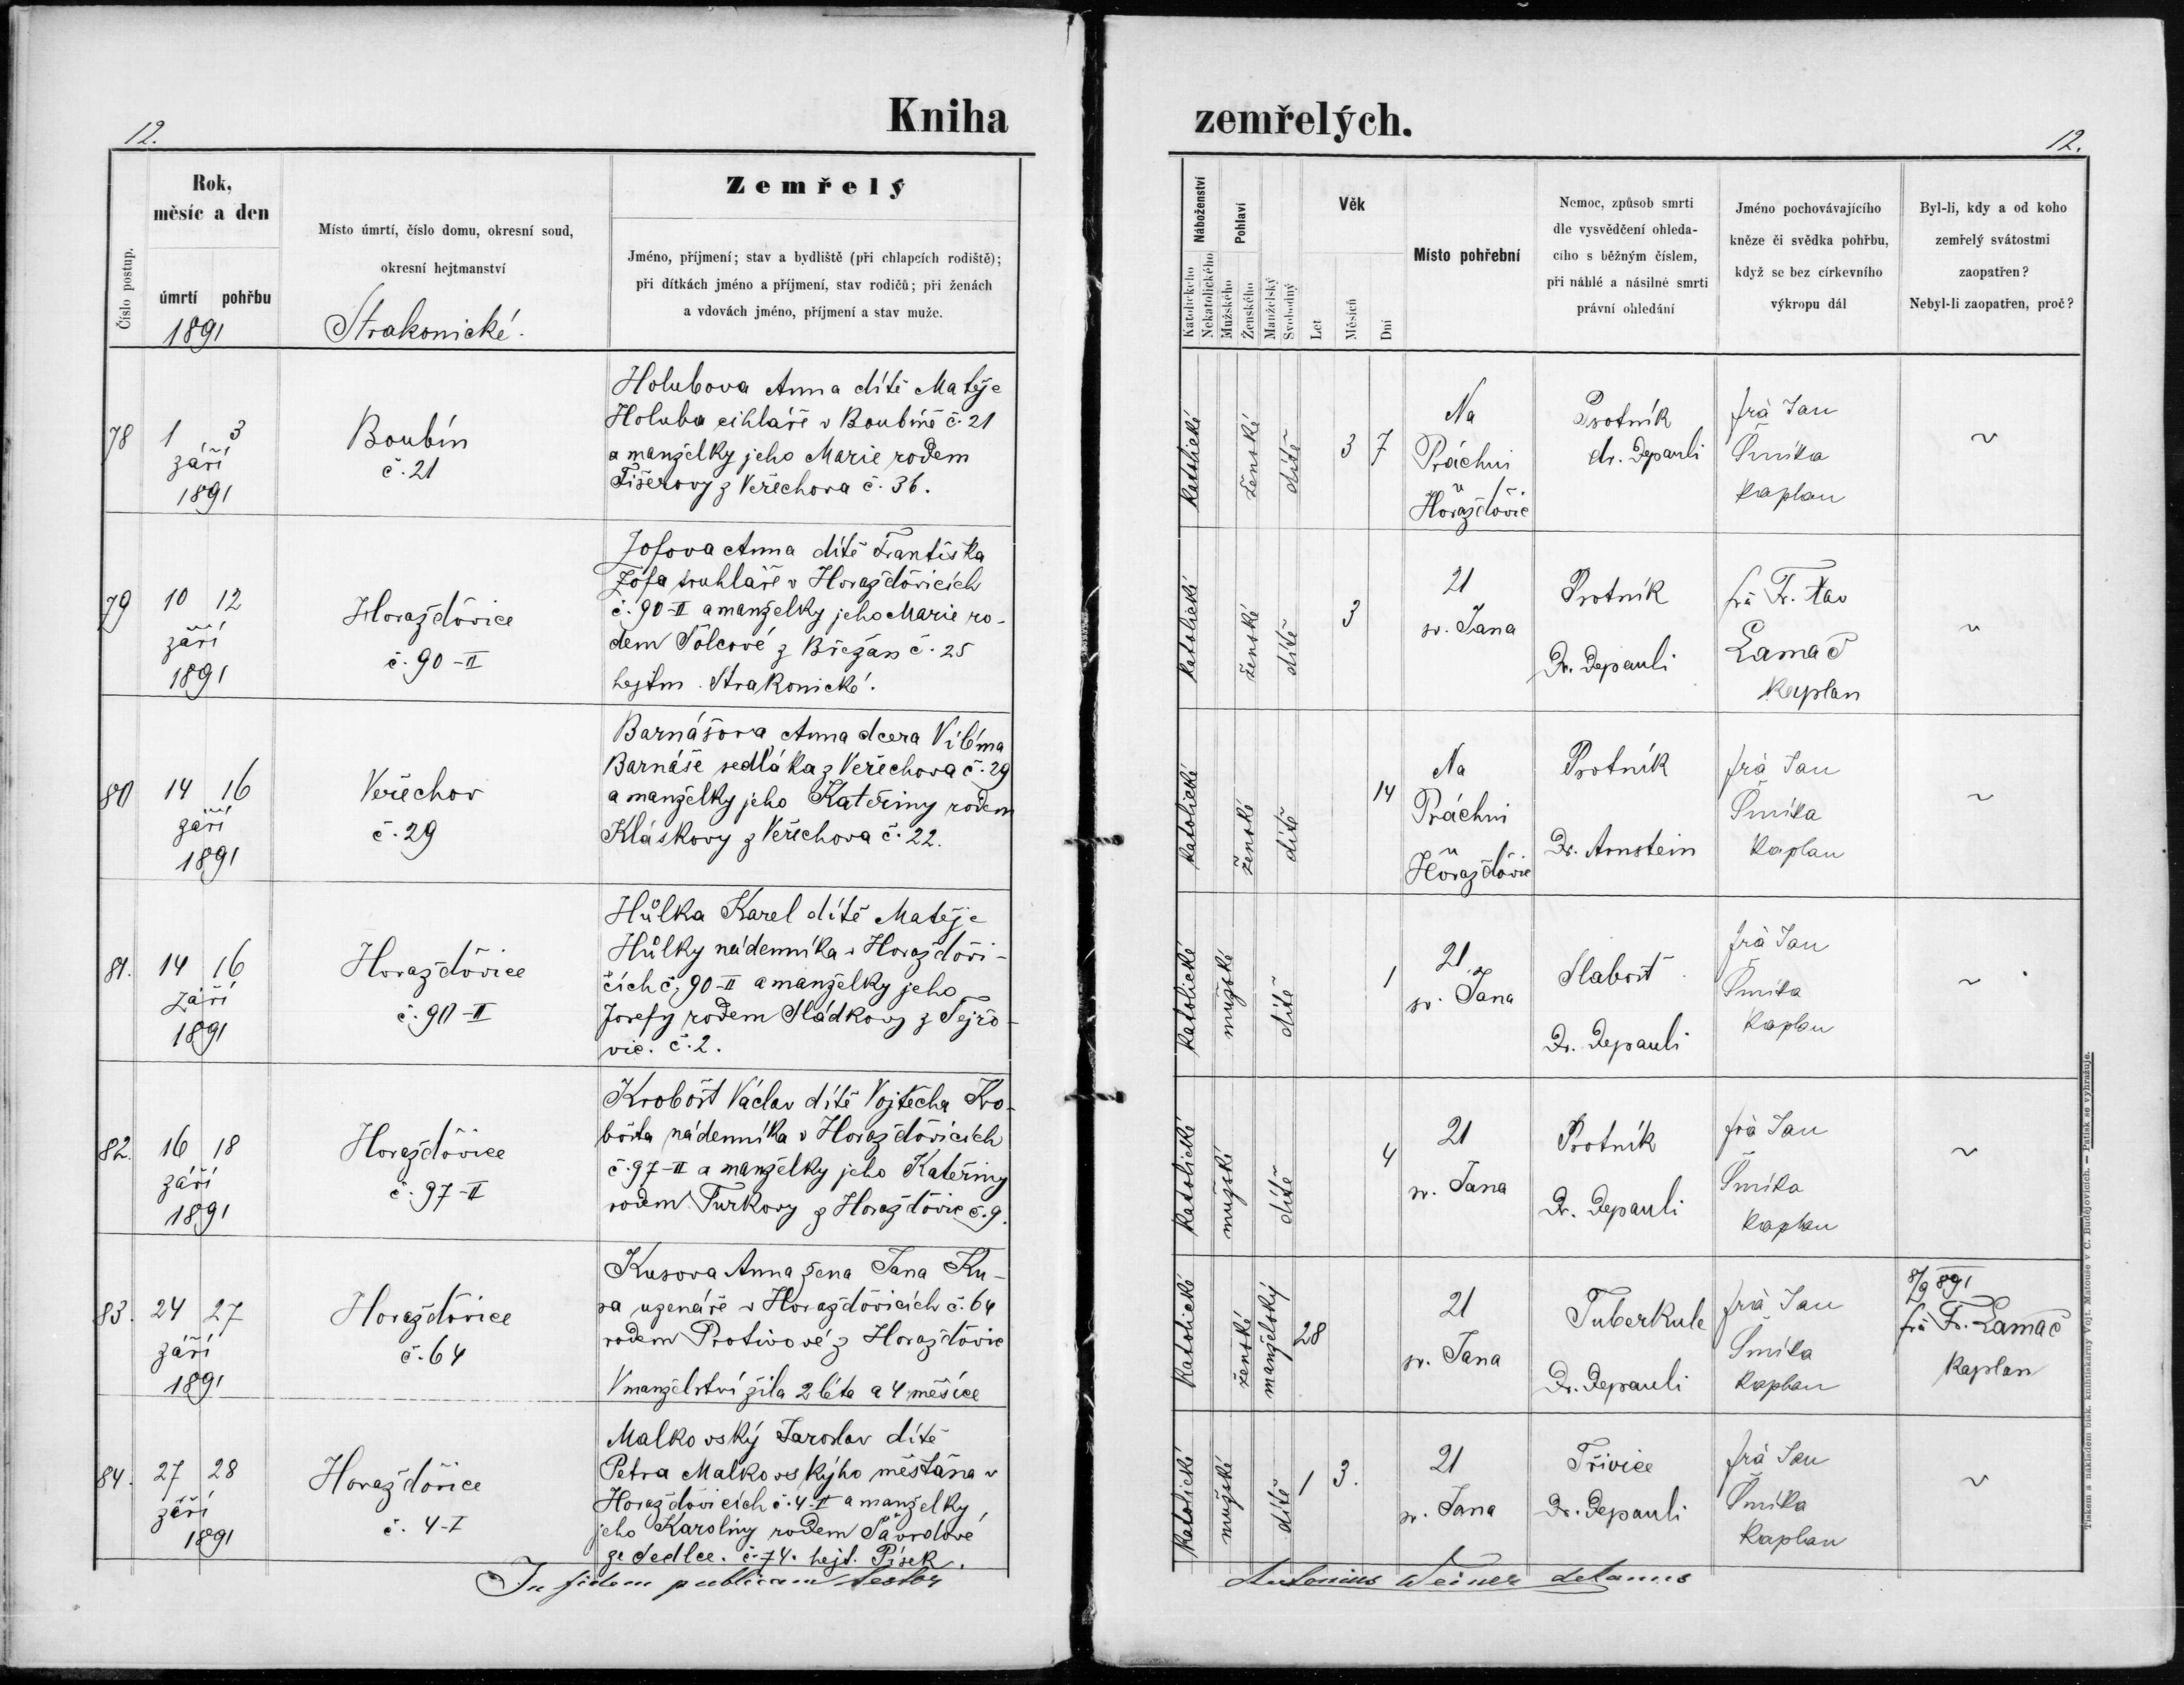 12.
Kniha
Rok,
měsíc a den
úmrtí pohřbu
1891
Číslo postup.
Místo úmrtí, číslo domu, okresní soud,
okresní hejtmanství
Strakonické.
Zemřelý
Jméno, příjmení; stav a bydliště (při chlapcích rodiště);
při dítkách jméno a příjmení, stav rodičů; při ženách
a vdovách jméno, příjmení a stav muže.
78
1 3
září
1891
Boubín
č. 21
Holubova Anna dítě Matěje
Holuba cihláře v Boubíně č. 21
a manželky jeho Marie rodem
Fišerovy z Veřechova č. 36.
79
10 12
září
1891
Horažďovice
č. 90-II
Jofova Anna dítě Františka
Jofa truhláře v Horažďovicích
č. 90-II a manželky jeho Marie ro-
dem Šolcové z Břežan č. 25
hejtm. Strakonické.
80
14 16
září
1891
Veřechov
č. 29
Barnášova Anna dcera Viléma
Barnáše sedláka z Veřechova č. 29
a manželky jeho Kateřiny rodem
Kláskovy z Veřechova č. 22.
81.
14 16
září
1891
Horažďovice
č. 90-II
Hůlka Karel dítě Matěje
Hůlky nádenníka v Horažďovi-
cích č. 90-II a manželky jeho
Josefy rodem Sládkovy z Tejřo-
vic. č. 2.
82.
16 18
září
1891
Horažďovice
č. 97-II
Krobošt Václav dítě Vojtěcha Kro-
bošta nádenníka v Horažďovicích
č. 97-II a manželky jeho Kateřiny
rodem Turkovy z Horažďovic č. 9.
83.
24 27
září
1891
Horažďovice
č. 64
Kusova Anna žena Jana Ku-
sa uzenáře v Horažďovicích č. 64
rodem Protivové z Horažďovic
V manželství žila 2 léta a 4 měsíce
84.
27 28
září
1891
Horažďovice
č. 4-I
Malkovský Jaroslav dítě
Petra Malkovskýho měšťana v
Horažďovicích č. 4-I a manželky
jeho Karoliny rodem
ze Sedlce. č. 74. hejt. Písek.
In fidem publicam testor
zemřelých.
12.
Náboženství
Katolického
Nekatolického
Pohlaví
Mužského
Ženského
Manželský
Svobodný
Věk
Let
Měsíců
Dní
Místo pohřební
Nemoc, způsob smrti
dle vysvědčení ohleda-
cího s běžným číslem,
při náhlé a násilné smrti
právní ohledání
Jméno pochovávajícího
kněze či svědka pohřbu,
když se bez církevního
výkropu dál
Byl-li, kdy a od koho
zemřelý svátostmi
zaopatřen?
Nebyl-li zaopatřen, proč?
katolické
ženské
dítě
3 7
Na
Práchni
u
Horažďovic
Psotník
dr. Depauli
frà Jan
Šmika
kaplan
~
katolické
ženské
dítě
3
21
sv. Jana
Psotník
Dr. Depauli
frà Fr. Xav
Lamač
kaplan
~
katolické
ženské
dítě
14
Na
Práchni
u
Horažďovic
Psotník
Dr. Arnstein
frà Jan
Šmika
kaplan
~
katolické
mužské
dítě
1
21
sv. Jana
Slabost
Dr. Depauli
frà Jan
Šmika
kaplan
~
katolické
mužské
dítě
4
21
sv. Jana
Psotník
Dr. Depauli
frà Jan
Šmika
kaplan
~
katolické
ženské
manželský
28
21
sv. Jana
Tuberkule
Dr. Depauli
frà Jan
Šmika
kaplan
8/9 891
frà Fr. Lamač
kaplan
katolické
mužské
dítě
1 3.
21
sv. Jana
Střivice
Dr. Depauli
frà Jan
Šmika
kaplan
~
Antonius Weiner dekanus
Tiskem a nákladem tisk. knihtiskárny Vojt. Matouše v Č. Budějovicích. – Patisk se vyhražuje.